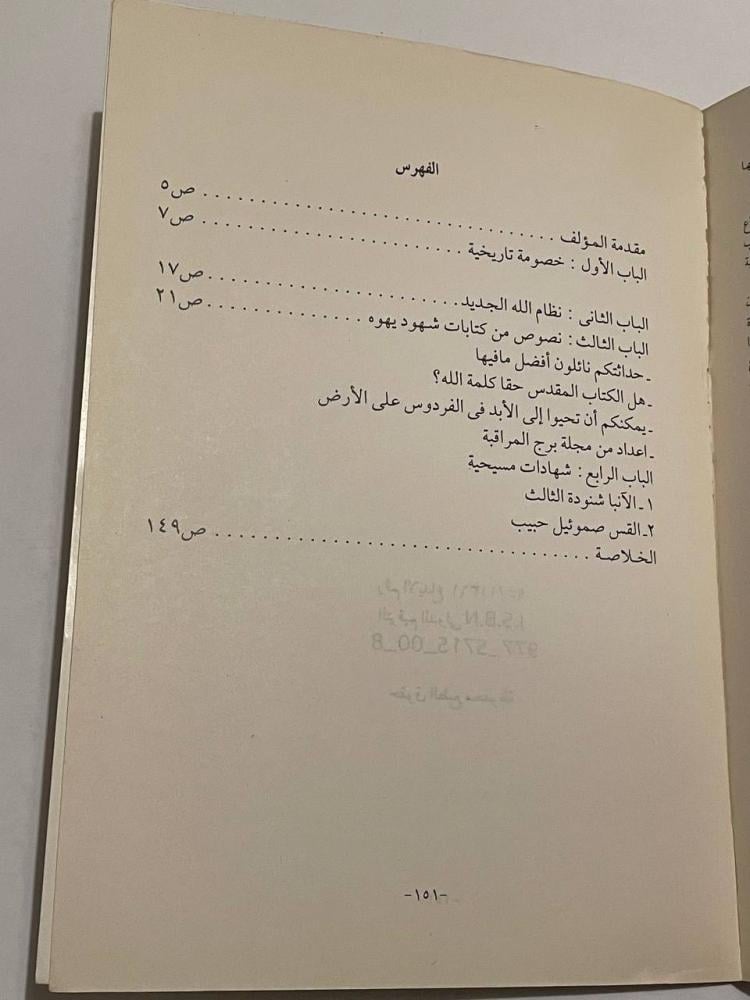 الفهرس
مقدمة المؤلف . . . . . . . . . . . . . . . . . . . . . . . . . . . . . . ص٥
الباب الأول : خصومة تاريخية . . . . . . . . . . . . . . . . . . . . . . ص٧
الباب الثانى : نظام الله الجديد . . . . . . . . . . . . . . . . . . . . . ص١٧
الباب الثالث : نصوص من كتابات شهود يهوه . . . . . . . . . . . . . ص٢١
ـ حداثتكم نائلون أفضل مافيها
ـ هل الكتاب المقدس حقا كلمة الله؟
ـ يمكنكم أن تحيوا إلى الأبد فى الفردوس على الأرض
ـ اعداد من مجلة برج المراقبة
الباب الرابع : شهادات مسيحية
١ ـ الآنبا شنودة الثالث
٢ـ القس صموئيل حبيب
الخلاصة . . . . . . . . . . . . . . . . . . . . . . . . . . . . . . . ص١٤٩
رقم الايداع
الترقيم الدولى I.S.B.N
977_5715_00_8
حقوق الطبع محفوظة
-١٥١-